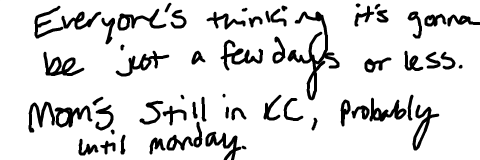 Everyone's thinking it's gonna
be just a few days or less.
Mom's still in KC, probably
until monday.